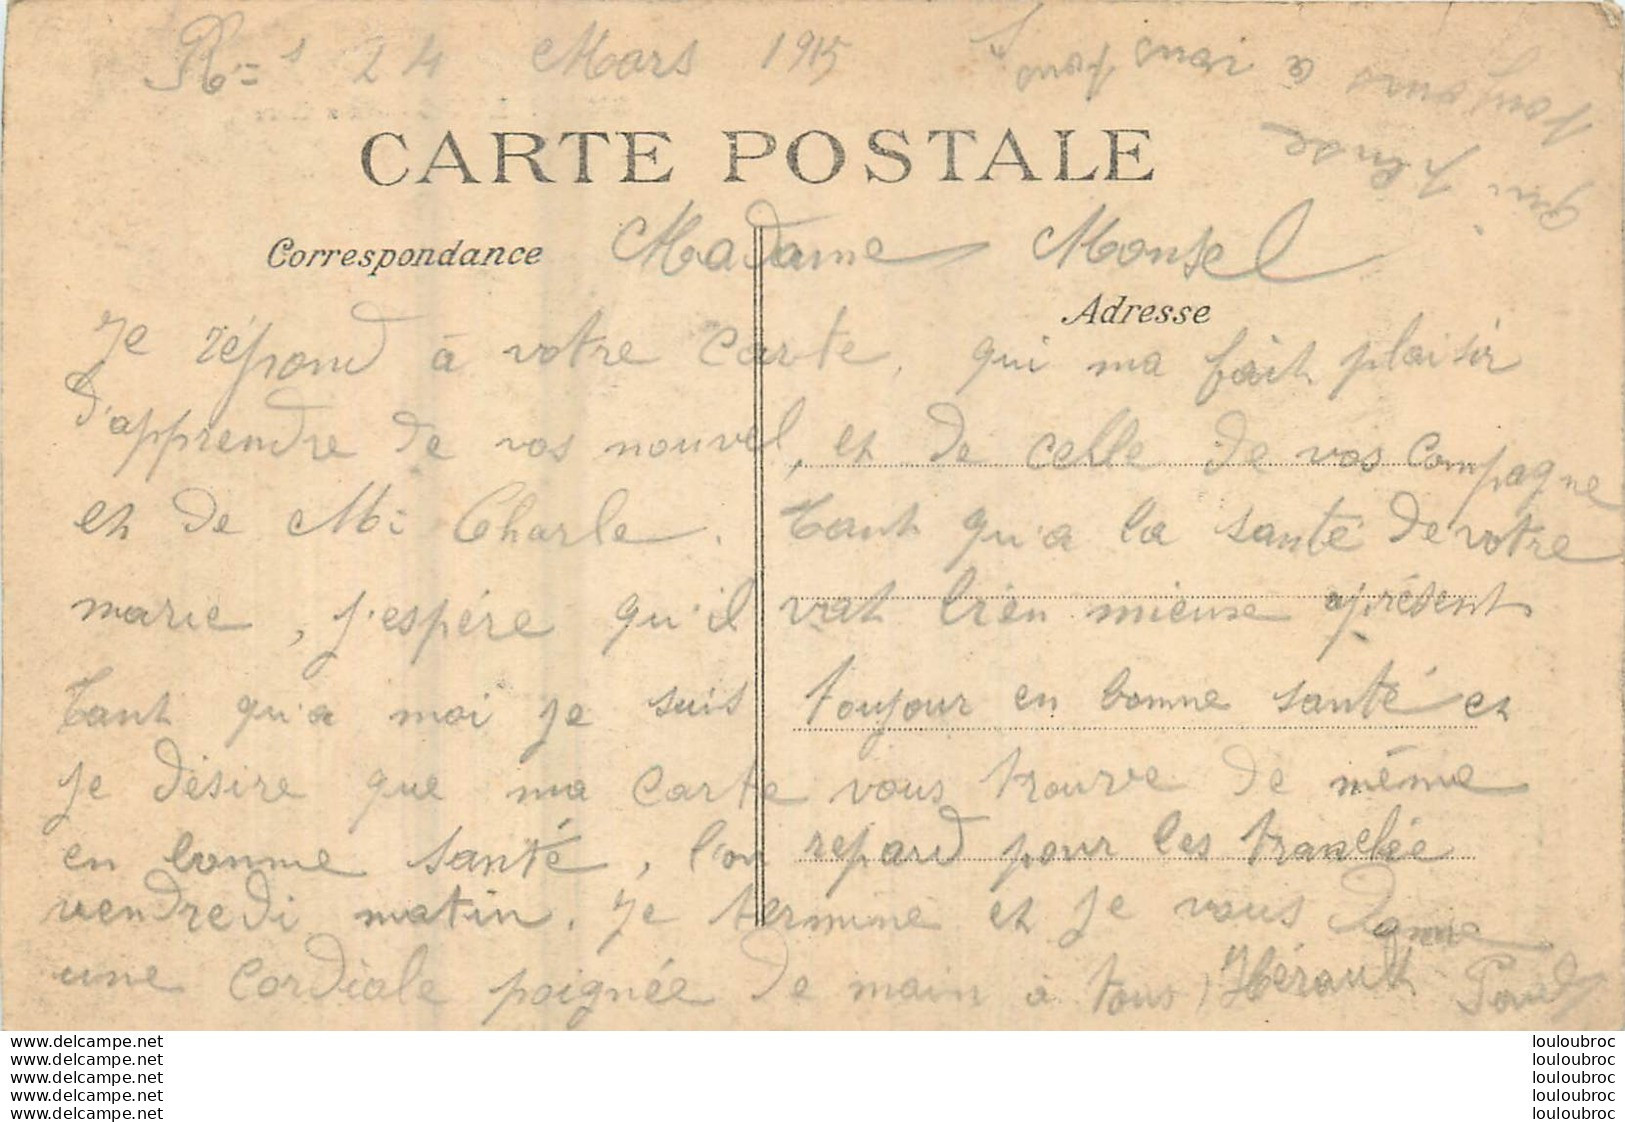 R=s 24 Mars 1915
CARTE POSTALE
Correspondance
Madame Monsel
Adresse
Je répond à votre Carte, qui ma fait plaisir
d'apprendre de vos nouvel, et de celle de vos Compagne
et de Mr Charle. Tant qu'a la santé de votre
marie, j'espére qu'il vat bien mieuse aprésent
Tant qu'a moi je suis toujour en bonne santé et
je désire que ma Carte vous trouve de même
en bonne santé, l'on repard pour les tranchée
vendredi matin. Je termine et je vous donne
une Cordiale poignée de main a tous, Hérault Paul
qui pense
toujours a vous tous
louloubroc.net
louloubroc.net
louloubroc.net
louloubroc.net
louloubroc.net
louloubroc
louloubroc
louloubroc
louloubroc
louloubroc